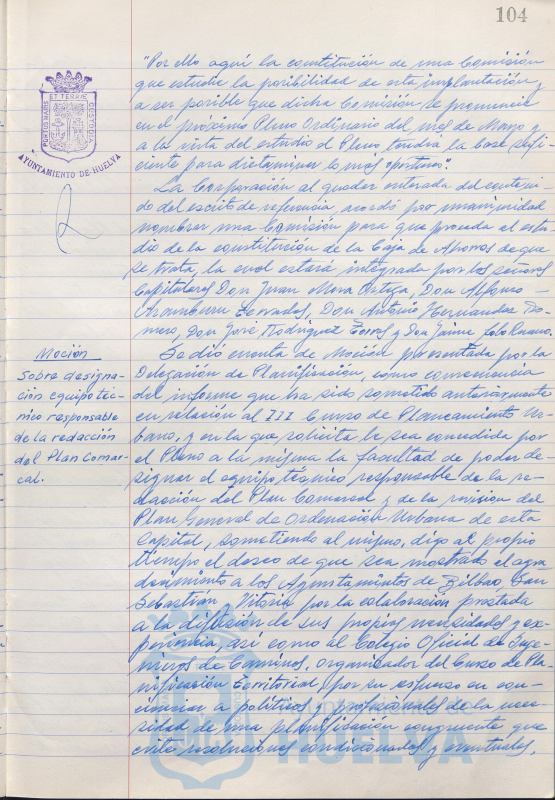 104
"Por ello aquí la constitución de una Comisión
que estudie la posibilidad de esta implantación y
a ser posible que dicha Comisión se pronuncie
en el próximo Pleno Ordinario del mes de Mayo, y
a la vista del estudio el Pleno tendra la base sufi-
ciente para dictaminar lo más oportuno".
La Corporación al quedar enterada del conteni-
do del escrito de referencia, acordó por unanimidad
nombrar una Comisión para que proceda al estu-
dio de la constitución de la Caja de Ahorros de que
se trata, la cual estará integrada por los señores
Capitulares Don Juan Mora Ortega, Don Alfonso
Aramburu Terrades, Don Antonio Hernandez Ro-
mero, Don José Rodriguez Torres y Don Jaime
Moción
Sobre designa-
ción equipo téc-
nico responsable
de la redacción
del Plan Comar-
cal.
Se dió cuenta de Moción presentada por la
Delegación de Planificación, como consecuencia
del informe que ha sido sometido anteriormente
en relación al III Curso de Planeamiento Ur-
bano, y en la que solicita le sea concedida por
el Pleno a la misma la facultad de poder de-
signar el equipo técnico responsable de la re-
dacción del Plan Comarcal y de la revision del
Plan General de Ordenación Urbana de esta
Capital, sometiendo al mismo, digo al propio
tiempo el deseo de que sea mostrado el agra-
decimiento a los Ayuntamientos de Bilbao, San
Sebastián y Vitoria por la colaboración prestada
a la difusión de sus propias necesidades y ex-
periencia, así como al Colegio Oficial de Inge-
nieros de Caminos, organizador del Curso de Pla-
nificación Territorial, por su esfuerzo en
a políticos y profesionales de la nece-
sidad de una planificación congruente que
evite resoluciones condicionadas y
PORTUS MARIS ET TERRAE CUSTODIA
AYUNTAMIENTO DE HUELVA
HUELVA